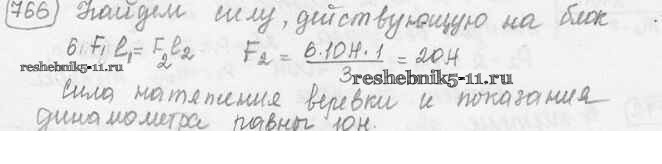 766 Найдем силу, действующую на блок
6F₁l₁ = F₂l₂ F₂ = 6·10Н·1 / 3 = 20Н
reshebnik5-11.ru reshebnik5-11.ru
Сила натяжения веревки и показания
динамометра равны 10Н.